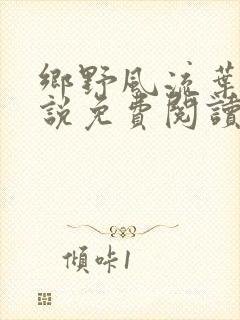 鄉野風流葉
說免費閱讀
傾咔1